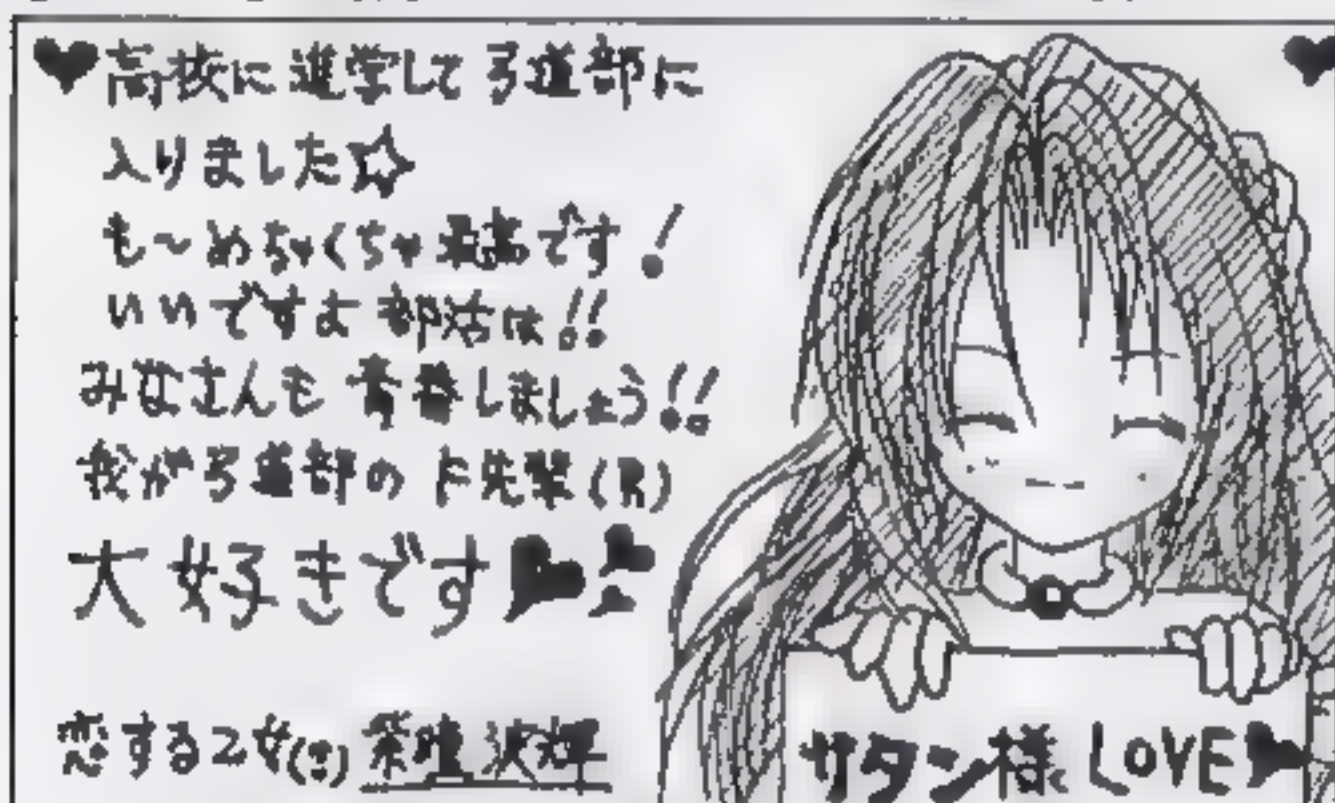 ♥高校に進学して弓道部に
入りました☆
も〜めちゃくちゃ最高です!
いいですよ部活は!!
みなさんも青春しましょう!!
我が弓道部のF先輩(R)
大好きです♥♥
恋する乙女
サタン様LOVE♥